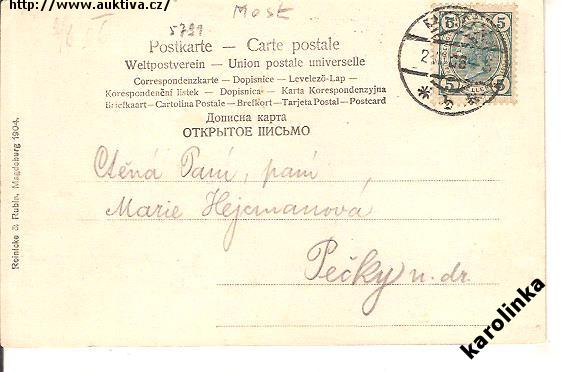 http://www.auktiva.cz/
Most
5791
Postkarte — Carte postale
Weltpostverein — Union postale universelle
Correspondenzkarte — Dopisnice — Levelező-Lap —
Korespondenční lístek — Dopisnica — Karta Korespondenzyjna
Briefkaart — Cartolina Postale — Brefkort — Tarjeta Postal — Postcard
Дописна карта
ОТКРЫТОЕ ПИСЬМО
5 5
5 5
Ctěná Paní, paní
Marie Hejcmanová
Pečky n. dr
Reinicke & Rubin, Magdeburg 1904.
karolinka